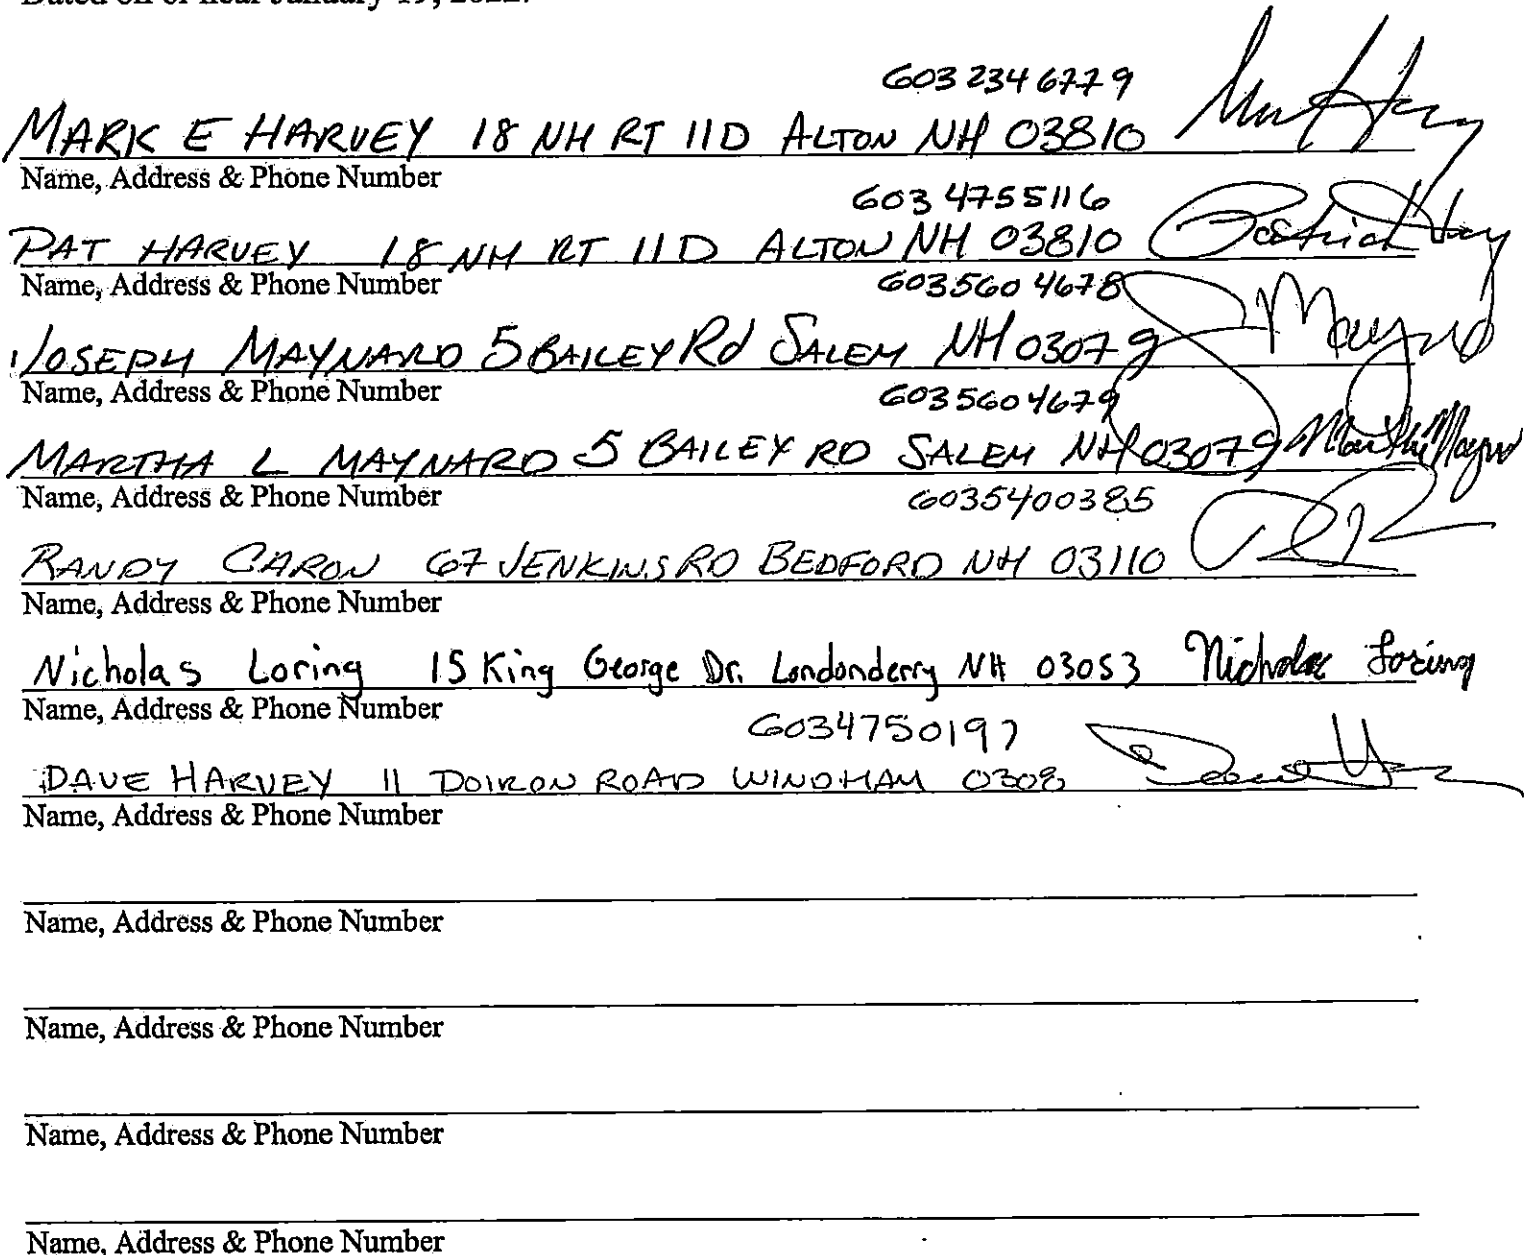 6032346779
MARK E HARVEY 18 NH RT 11D ALTON NH 03810
Name, Address & Phone Number
603 4755116
PAT HARVEY 18 NH RT 11D ALTON NH 03810 Patricia Harvey
Name, Address & Phone Number
6035604678
JOSEPH MAYNARD 5 BAILEY Rd SALEM NH 03079 J Maynard
Name, Address & Phone Number
6035604679
MARTHA L MAYNARD 5 BAILEY RD SALEM NH 03079 Martha Maynard
Name, Address & Phone Number
6035400385
RANDY CARON 67 JENKINS RD BEDFORD NH 03110
Name, Address & Phone Number
Nicholas Loring 15 King George Dr. Londonderry NH 03053 Nicholas Loring
Name, Address & Phone Number
6034750197
DAVE HARVEY 11 DOIRON ROAD WINDHAM 0308
Name, Address & Phone Number
Name, Address & Phone Number
Name, Address & Phone Number
Name, Address & Phone Number
Name, Address & Phone Number